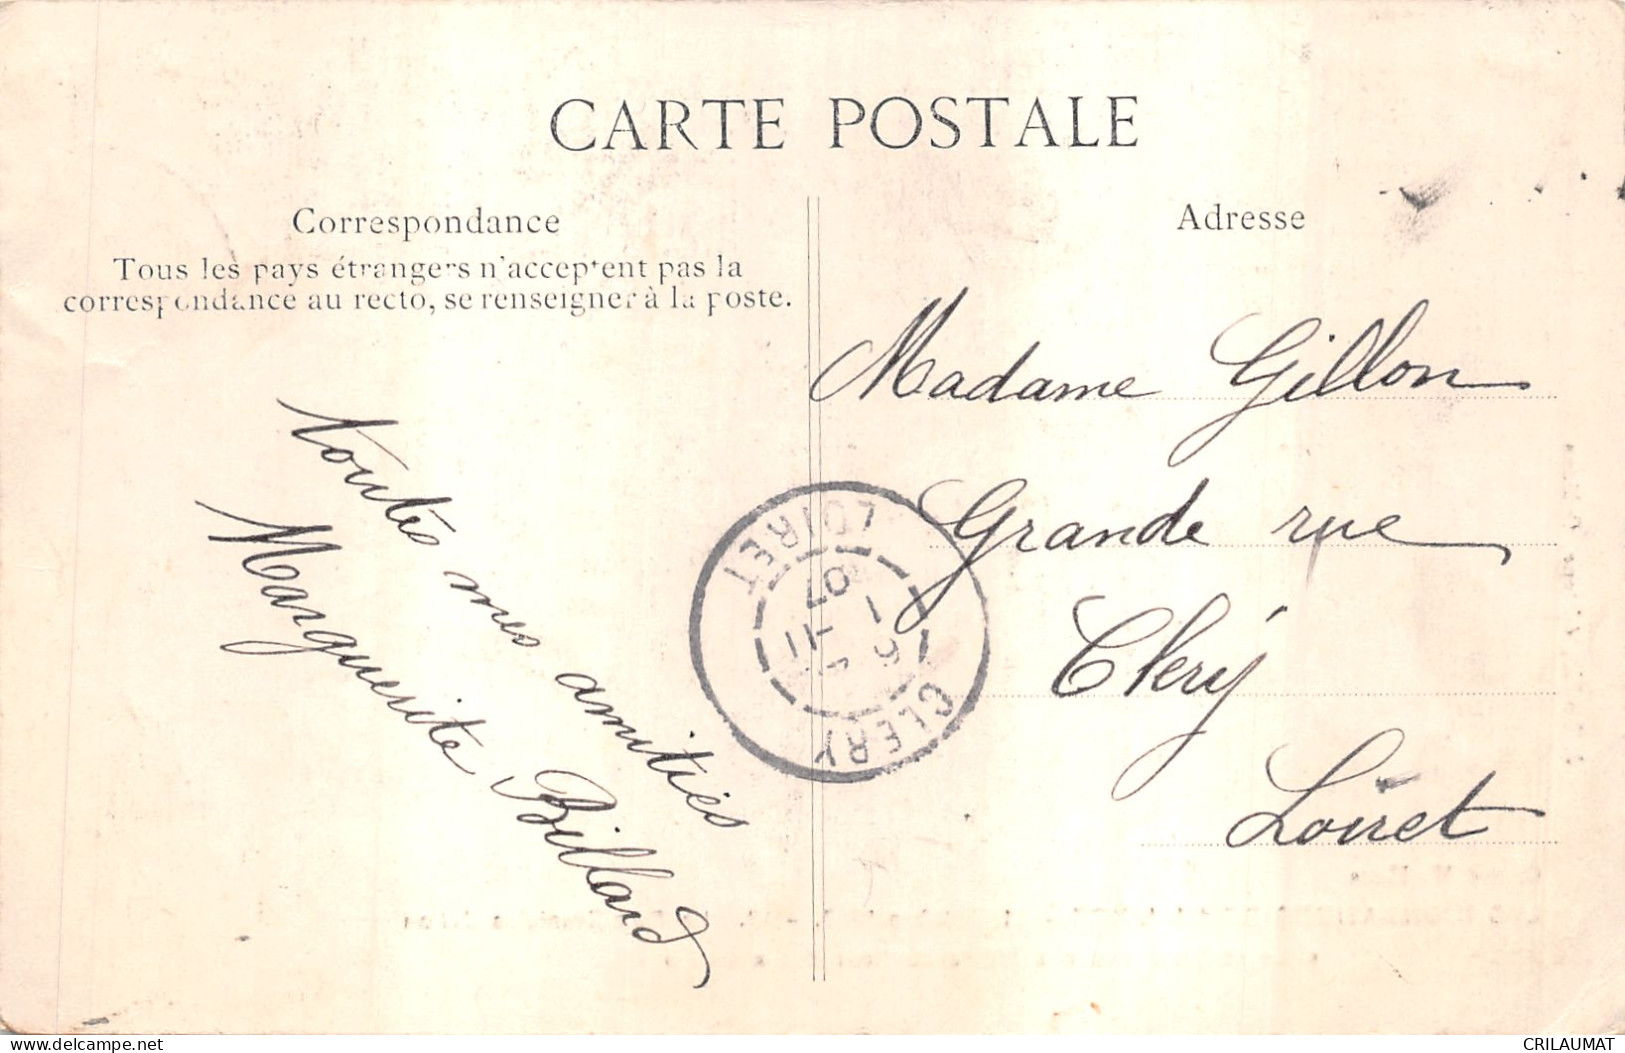 CARTE POSTALE
Correspondance
Tous les pays étrangers n'acceptent pas la
correspondance au recto, se renseigner à la poste.
Toutes mes amitiés
Marguerite Billard
Adresse
Madame Gillon
Grande rue
Cléry
Loiret
CLERY
LOIRET
11
07
www.delcampe.net
CRILAUMAT